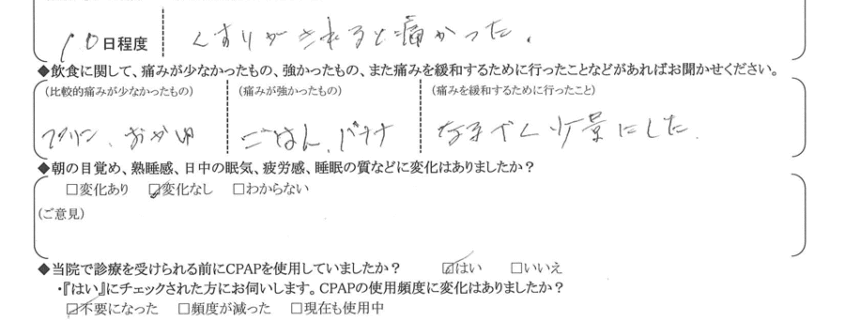 10日程度 くすりがきれると痛かった.
◆飲食に関して、痛みが少なかったもの、強かったもの、また痛みを緩和するために行ったことなどがあればお聞かせください。
(比較的痛みが少なかったもの) (痛みが強かったもの) (痛みを緩和するために行ったこと)
プリン、おかゆ ごはん、バナナ なるべく少量にした.
◆朝の目覚め、熟睡感、日中の眠気、疲労感、睡眠の質などに変化はありましたか？
□変化あり ☑変化なし □わからない
(ご意見)
◆当院で診療を受けられる前にCPAPを使用していましたか？ ☑はい □いいえ
・『はい』にチェックされた方にお伺いします。CPAPの使用頻度に変化はありましたか？
☑不要になった □頻度が減った □現在も使用中